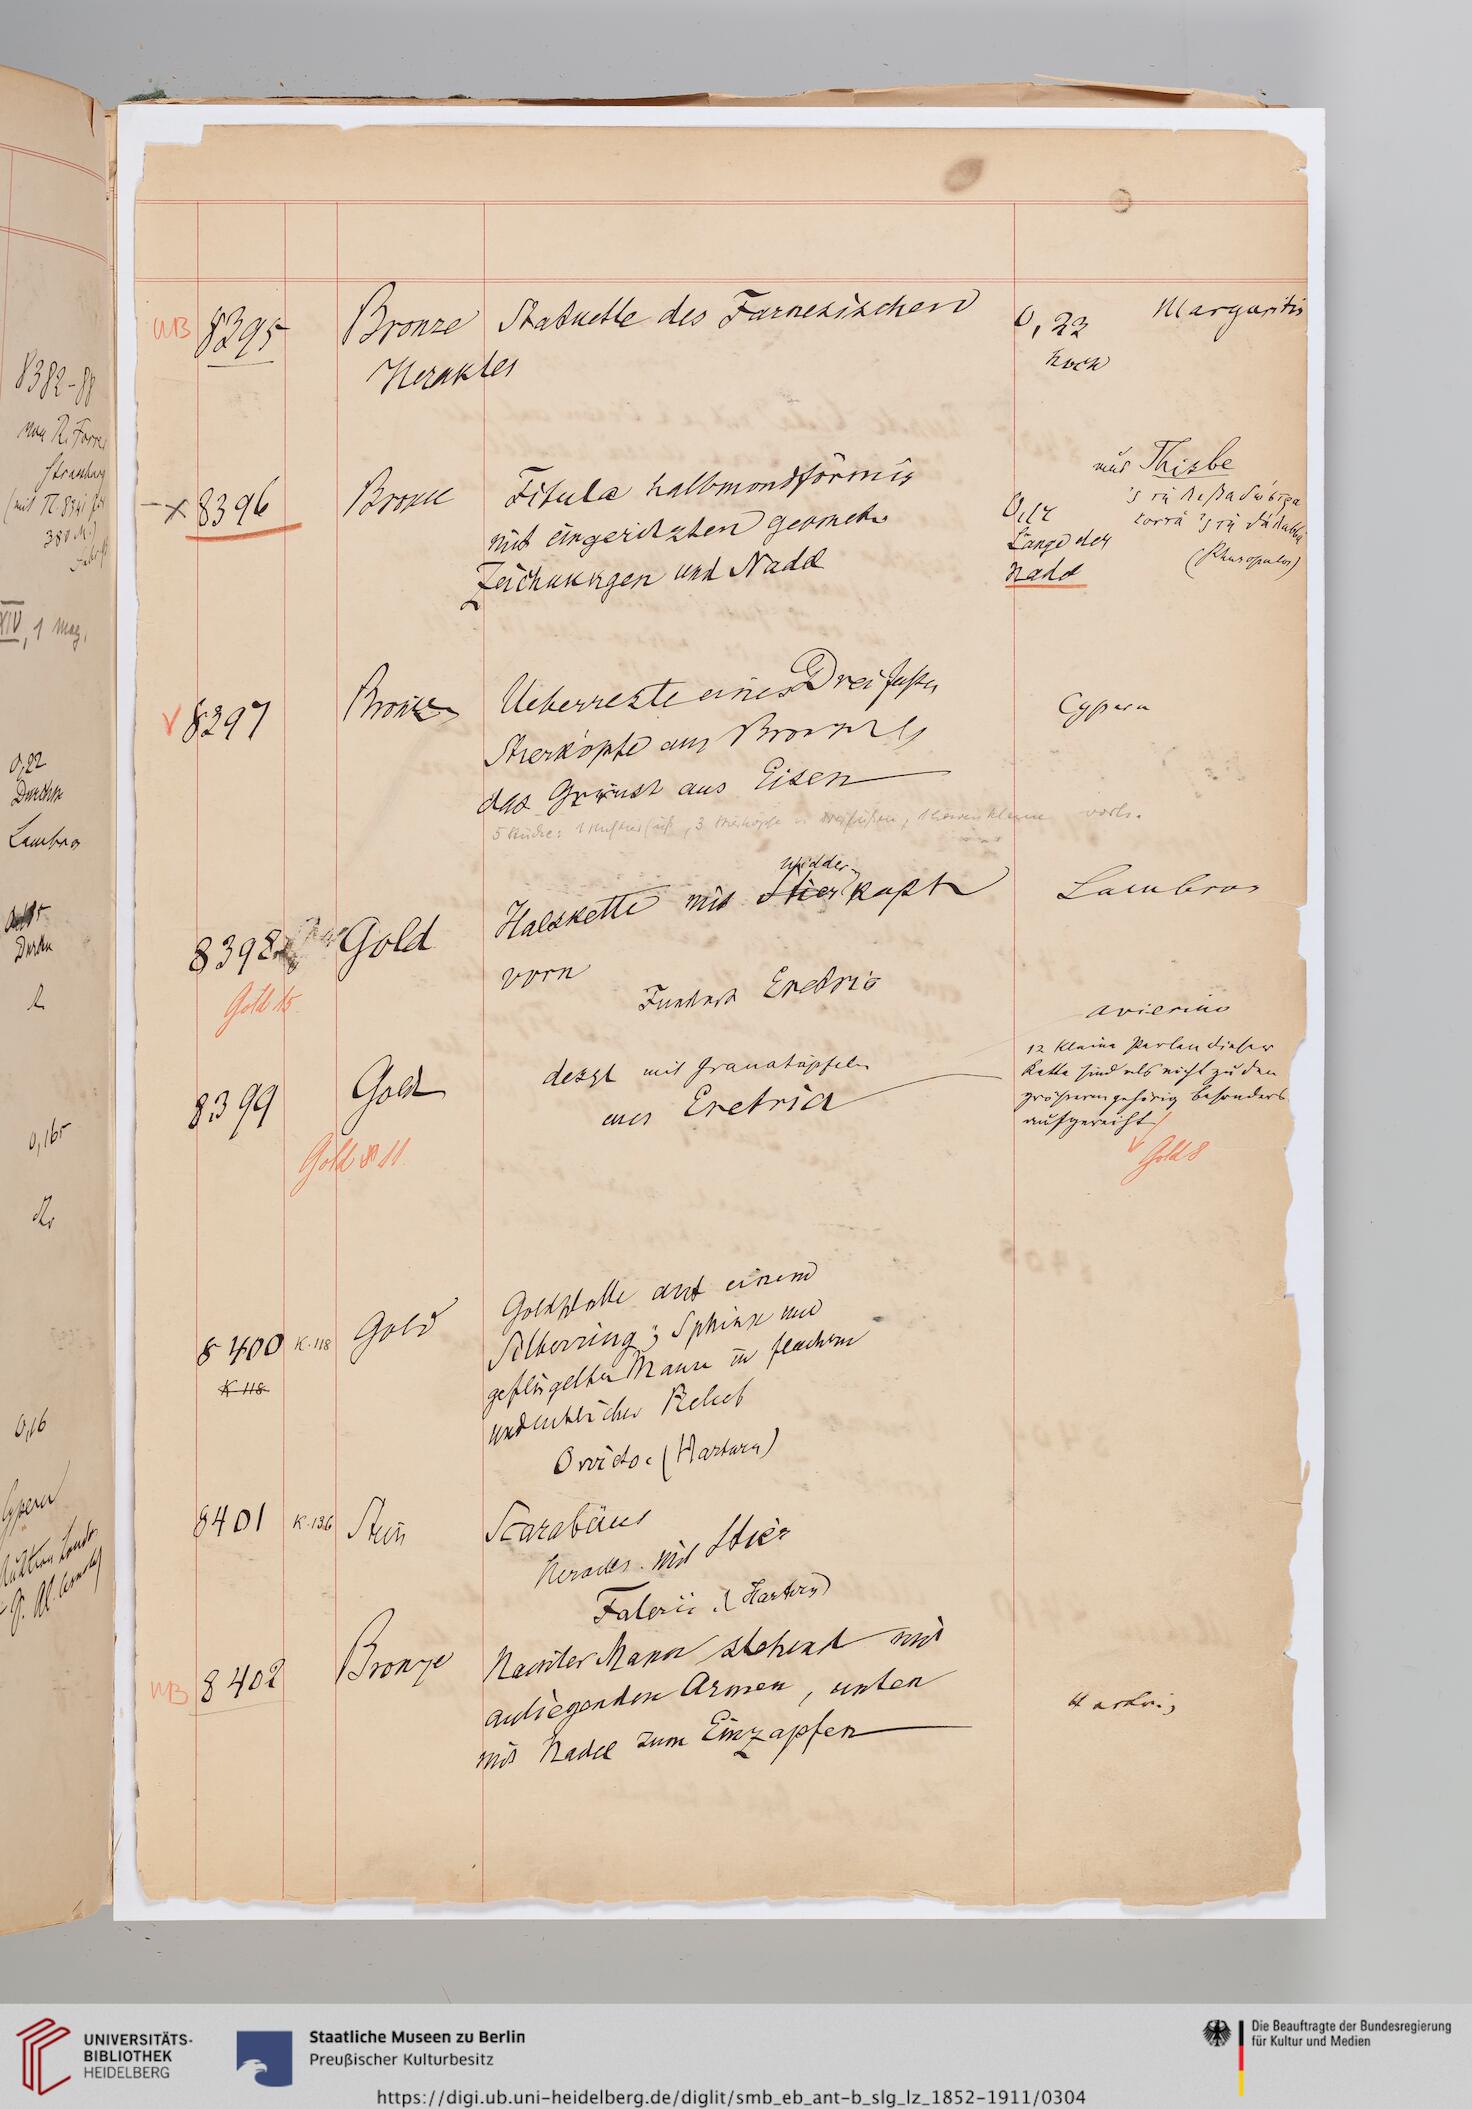 8382-88
0,22
Lambros
0,165
0,16
Cypern
MB 8395 Bronze Statuette des Farnesischen 0,22 Margaritis
Herakles hoch
aus Thisbe
8396 Bronze Fibula halbmondförmig
mit eingeritzten geometr. Länge der (Rhusopulos)
Zeichnungen und Nadel Nadel
8397 Bronze Ueberreste eines Dreifußes Cypern
Stierköpfe aus Bronze
das Gerüst aus Eisen
5 Stücke: 3 Stierköpfe vorh.
Widder
8398 Gold Halskette mit Stierkopf Lambros
vorn
Fundort Eretria
Gold 15.
avierino
8399 Gold desgl mit Granatäpfeln
aus Eretria
12 kleine Perlen dieser
Kette sind als nicht zu den
größeren gehörig besonders
aufgereiht
Gold 11. Gold 8
8400 K.118 Gold Goldplatte auf einem
K 118 Silberring; Sphinx und
geflügelter Mann in flachem
undeutlichen Relief
Orvieto. (Hartwig)
8401 K.136 Stein Scarabäus
Heracles mit Stier
Falerii (Hartwig)
MB 8402 Bronze Nackter Mann stehend mit
anliegenden Armen, unten Hartwig
mit Nadel zum Einzapfen
UNIVERSITÄTS-
BIBLIOTHEK
HEIDELBERG
Staatliche Museen zu Berlin
Preußischer Kulturbesitz
Die Beauftragte der Bundesregierung
für Kultur und Medien
https://digi.ub.uni-heidelberg.de/diglit/smb_eb_ant-b_slg_lz_1852-1911/0304